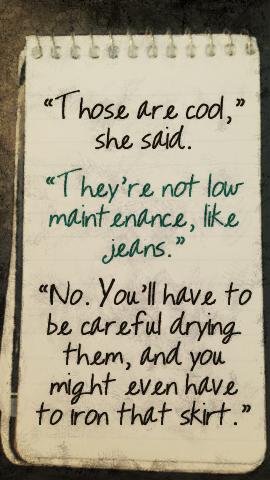 “Those are cool,”
she said.
“They’re not low
maintenance, like
jeans.”
“No. You’ll have to
be careful drying
them, and you
might even have
to iron that skirt.”